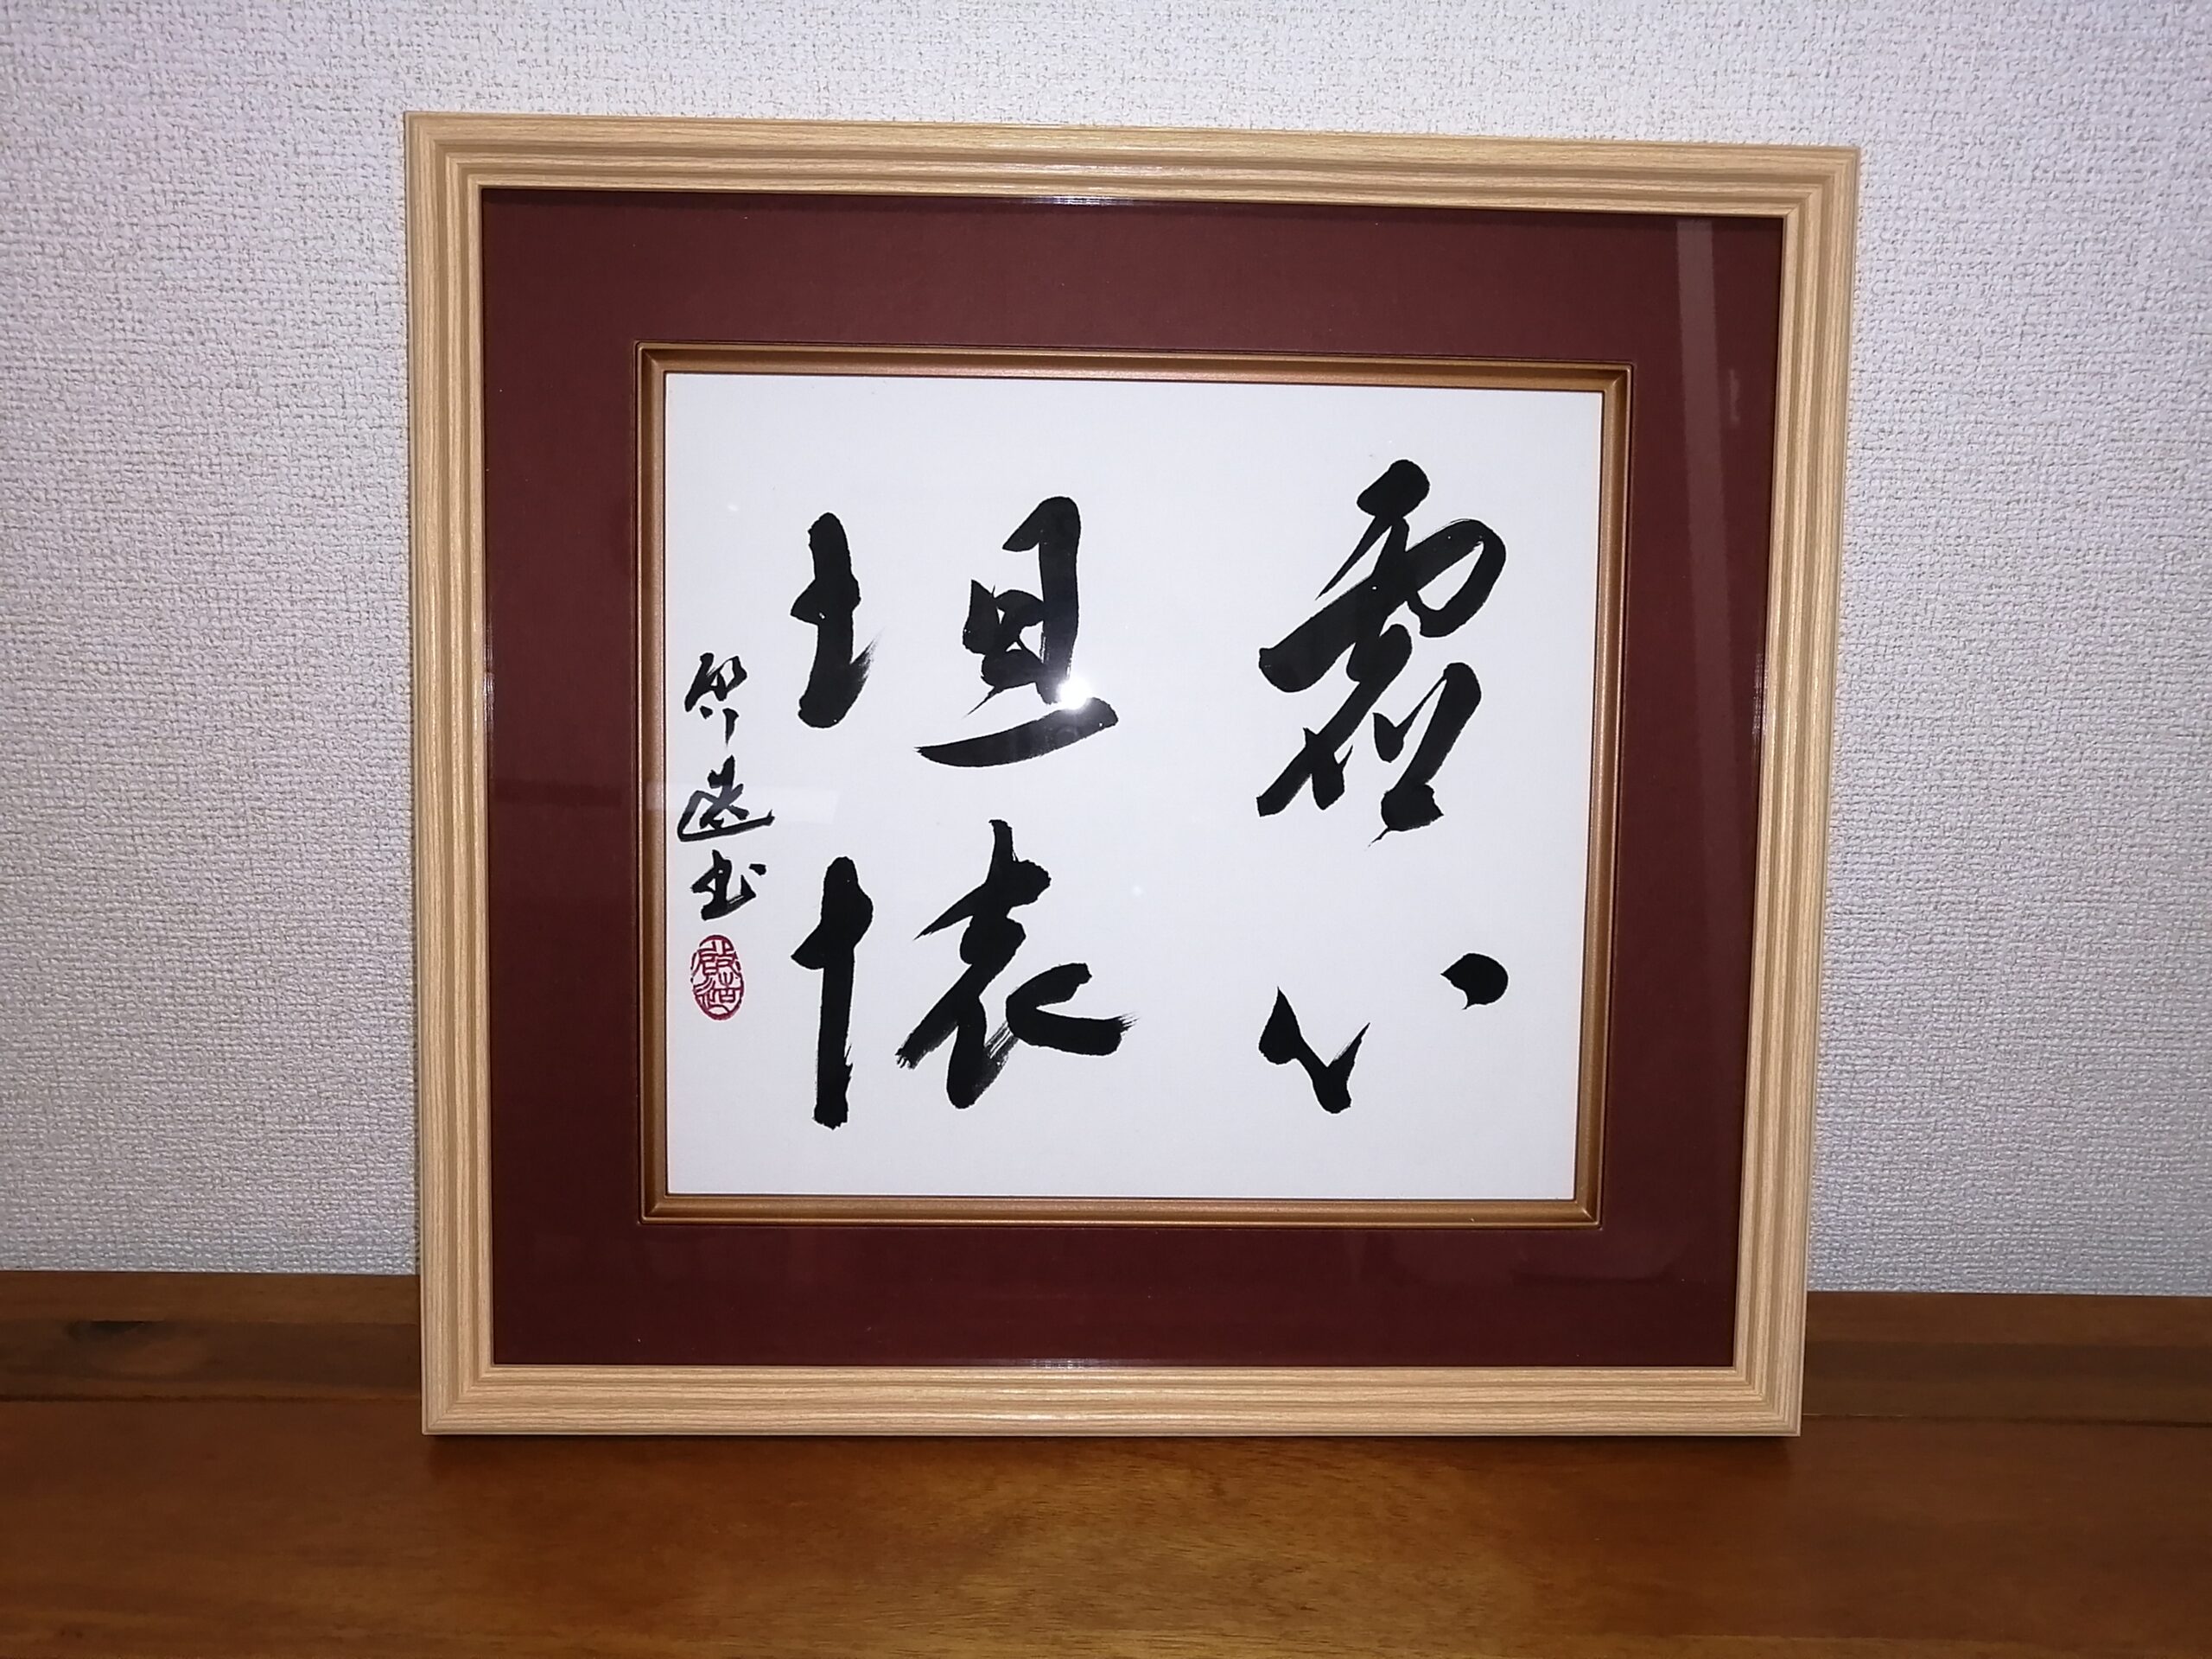 虚心
坦懐
書